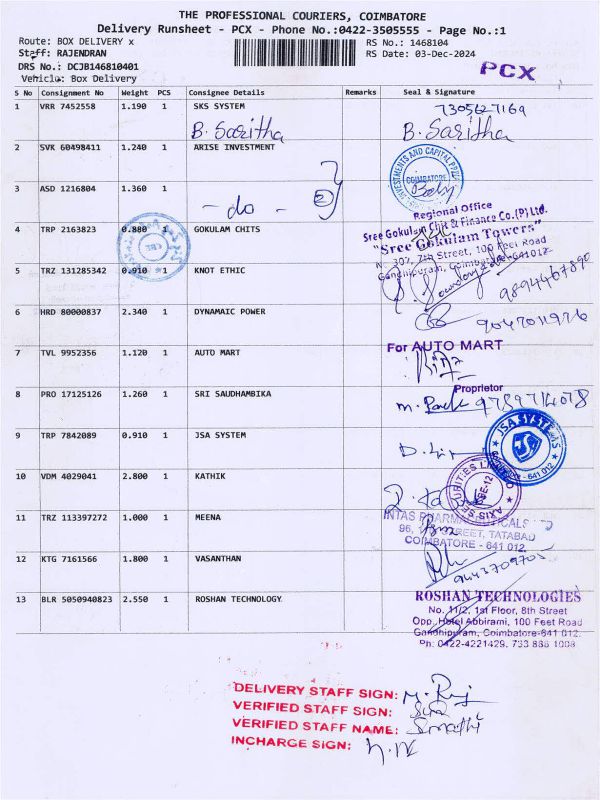 THE PROFESSIONAL COURIERS, COIMBATORE
Delivery Runsheet - PCX - Phone No.:0422-3505555 - Page No.:1
Route: BOX DELIVERY x RS No.: 1468104
Staff: RAJENDRAN RS Date: 03-Dec-2024
DRS No.: DCJB146810401 PCX
Vehicle: Box Delivery
S No Consignment No Weight PCS Consignee Details Remarks Seal & Signature
1 VRR 7452558 1.190 1 SKS SYSTEM 7305627169
B. Saritha B. Saritha
2 SVK 60498411 1.240 1 ARISE INVESTMENT
INVESTMENTS AND CAPITAL
COIMBATORE
3 ASD 1216804 1.360 1
- do - 2
Regional Office
Sree Gokulam Chit & Finance Co.(P) Ltd.
4 TRP 2163823 0.880 1 GOKULAM CHITS
"Sree Gokulam Towers"
7th Street, 100 Feet Road
Gandhipuram, Coimbatore-641012
5 TRZ 131285342 0.910 1 KNOT ETHIC
9894467890
6 HRD 80000837 2.340 1 DYNAMAIC POWER
7 TVL 9952356 1.120 1 AUTO MART
For AUTO MART
Proprietor
8 PRO 17125126 1.260 1 SRI SAUDHAMBIKA
9789714078
9 TRP 7842089 0.910 1 JSA SYSTEM
JSA SYSTEMS
COIMBATORE - 641 012
10 VDM 4029041 2.800 1 KATHIK
AXIS SECURITIES LIMITED
CBE-12
11 TRZ 113397272 1.000 1 MEENA
INTAS PHARMACEUTICALS
96, STREET, TATABAD
COIMBATORE - 641 012.
12 KTG 7161566 1.800 1 VASANTHAN
9443709705
13 BLR 5050940823 2.550 1 ROSHAN TECHNOLOGY
ROSHAN TECHNOLOGIES
No. 11/2, 1st Floor, 8th Street
Opp. Hotel Abbirami, 100 Feet Road
Gandhipuram, Coimbatore-641 012.
Ph: 0422-4221429, 733 888 1008
DELIVERY STAFF SIGN:
VERIFIED STAFF SIGN:
VERIFIED STAFF NAME: Sumathi
INCHARGE SIGN: